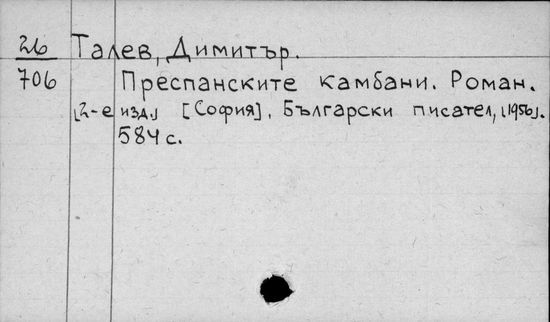 26 Талев, Димитър.
706 Преспанските камбани. Роман.
[2-е изд.] [София], Български писател, [1956].
584 с.